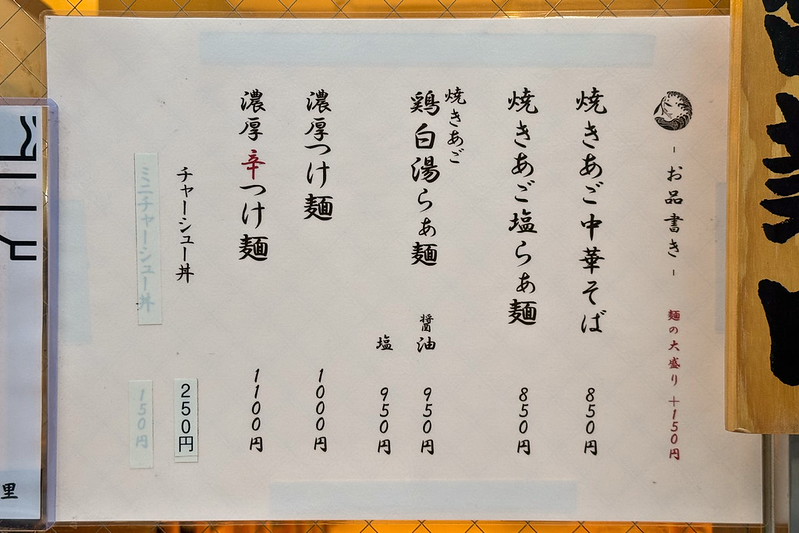 - お品書き -
麺の大盛り +150円
焼きあご中華そば 850円
焼きあご塩らぁ麺 850円
焼きあご
鶏白湯らぁ麺 醤油 950円
塩 950円
濃厚つけ麺 1000円
濃厚辛つけ麺 1100円
チャーシュー丼 250円
ミニチャーシュー丼 150円
里